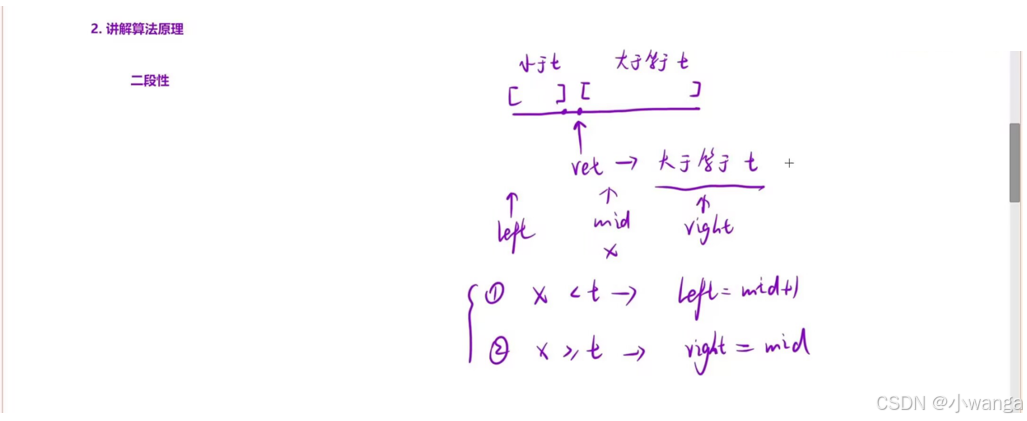 2. 讲解算法原理
二段性
小于t 大于等于 t
[ ] [ ]
ret → 大于等于 t
left mid right
x
① x < t → left = mid+1
② x ≥ t → right = mid
CSDN @小wanga